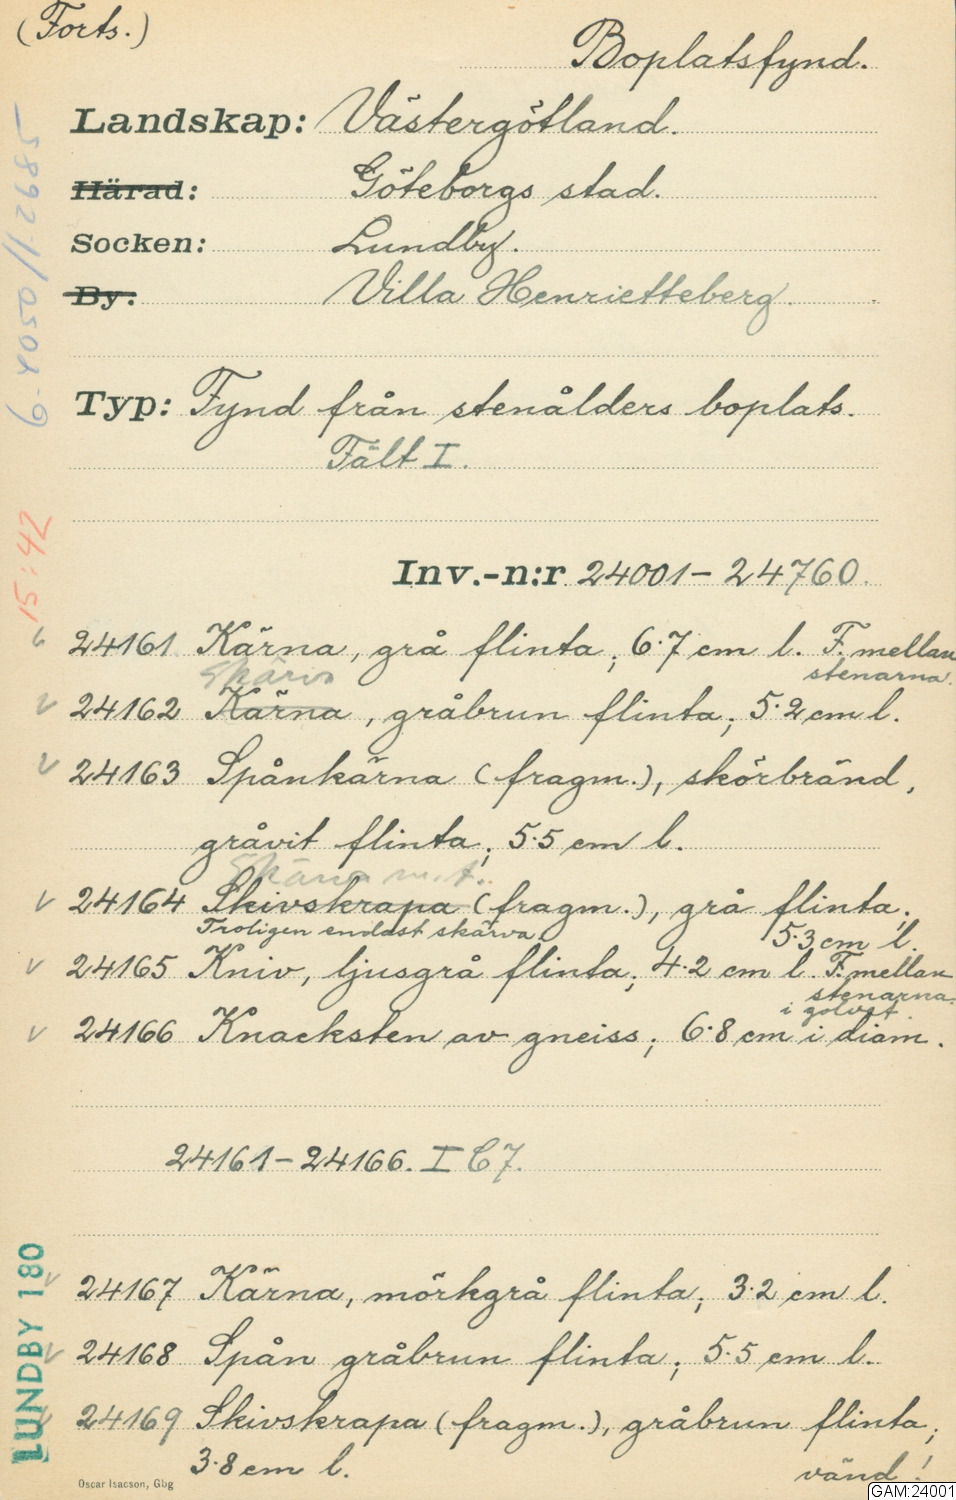 (Forts.)
Boplatsfynd.
Landskap: Västergötland.
Härad: Göteborgs stad.
Socken: Lundby.
By: Villa Henrietteberg.
Typ: Fynd från stenålders boplats.
Fält I.
Inv.-n:r 24001-24760.
24161 Kärna, grå flinta; 6.7 cm l. F. mellan
stenarna.
Skärva
24162 Kärna, gråbrun flinta; 5.2 cm l.
24163 Spånkärna (fragm.), skörbränd,
gråvit flinta; 5.5 cm l.
Skärva m.
24164 Skivskrapa (fragm.), grå flinta;
Troligen endast skärva. 5.3 cm l.
24165 Kniv, ljusgrå flinta; 4.2 cm l. F. mellan
stenarna
i golvet.
24166 Knacksten av gneiss; 6.8 cm i diam.
24161-24166. I C7.
24167 Kärna, mörkgrå flinta; 3.2 cm l.
24168 Spån gråbrun flinta; 5.5 cm l.
24169 Skivskrapa (fragm.), gråbrun flinta;
3.8 cm l.
vänd!
Oscar Isacson, Gbg
GAM:24001
15:42
LUNDBY 180